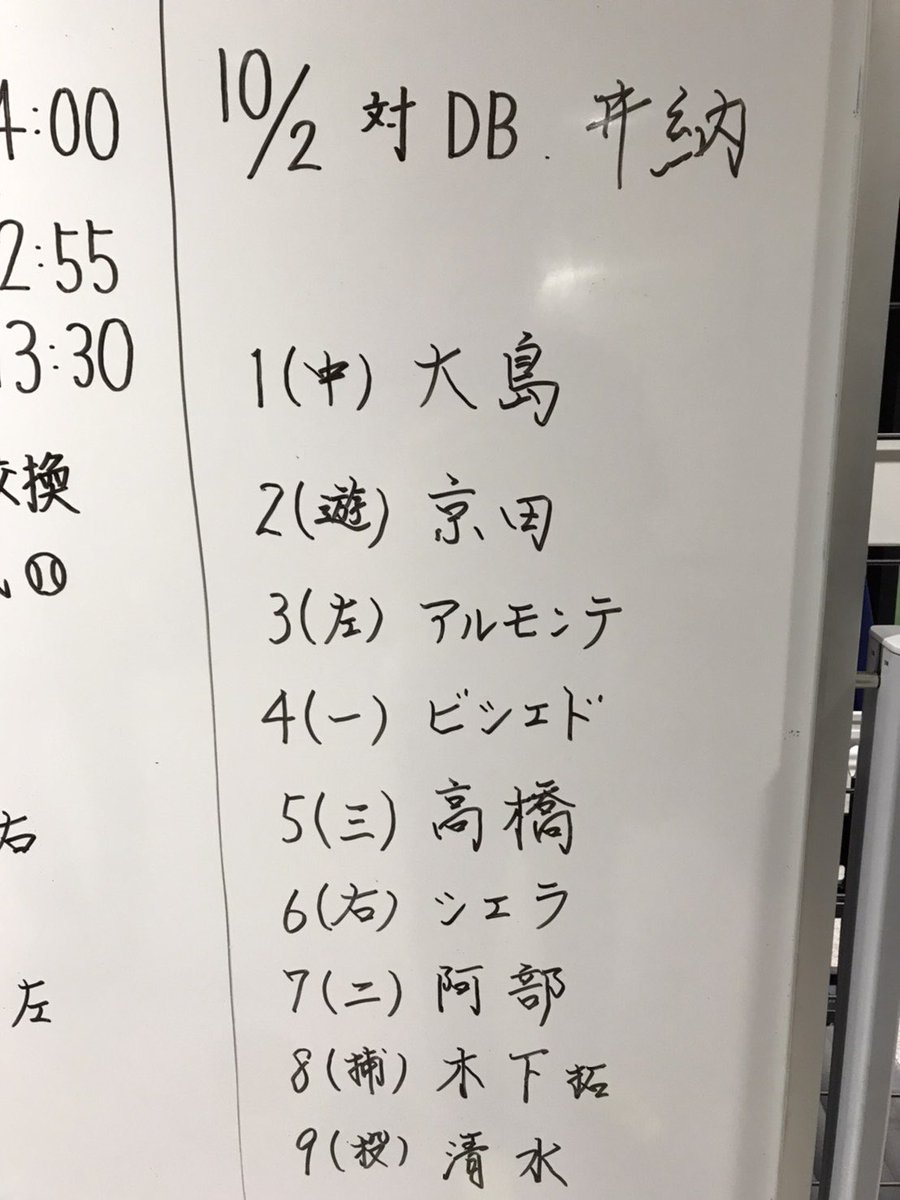 4:00
2:55
13:30
交換
右
左
10/2 対 DB. 井納
1(中) 大島
2(遊) 京田
3(左) アルモンテ
4(一) ビシエド
5(三) 高橋
6(右) シエラ
7(二) 阿部
8(捕) 木下拓
9(投) 清水